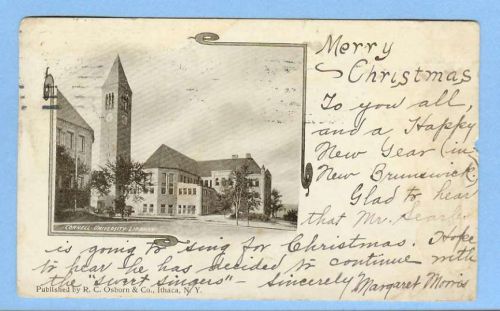 Merry
Christmas
To you all,
and a Happy
New Year (in
New Brunswick)
Glad to hear
that Mr. Searles
is going to sing for Christmas. Hope
to hear he has decided to continue with
the "sweet singers" - Sincerely Margaret Morris
CORNELL UNIVERSITY LIBRARY
Published by R. C. Osborn & Co., Ithaca, N. Y.